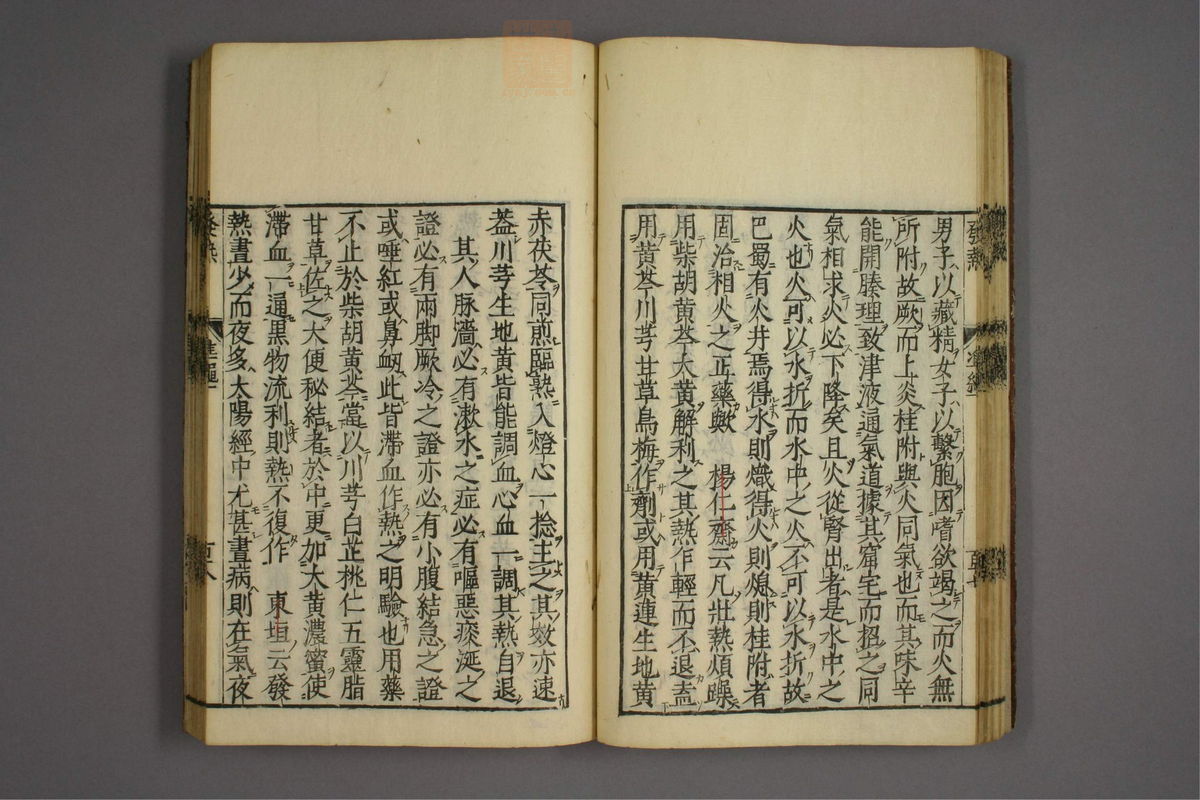 男子以藏精女子以繫胞因嗜欲竭之而火無
所附故厥而上炎桂附與火同氣也而其味辛
能開腠理致津液通氣道據其窟宅而招之同
氣相求火必下降矣且火從腎出者是水中之
火也火可以水折而水中之火不可以水折故
巴蜀有火井焉得水則熾得火則熄則桂附者
固洽相火之正藥歟　楊仁齋云凡壯熱煩躁
用柴胡黃芩大黃解利之其熱作輕而不退盍
用黃芩川芎甘草烏梅作劑或用黃連生地黃
赤茯苓同煎臨熟入燈心一捻主之其効亦速
蓋川芎生地黃皆能調血心血一調其熱自退
其人脉濇必有漱水之症必有嘔惡痰涎之
證必有兩脚厥冷之證亦必有小腹結急之證
或唾紅或鼻衂此皆滯血作熱之明驗也用藥
不止於柴胡黃芩當以川芎白芷桃仁五靈脂
甘草佐之大便秘結者於中更加大黃濃蜜使
滯血一通黒物流利則熱不復作　東垣云發
熱晝少而夜多太陽經中尤甚晝病則在氣夜